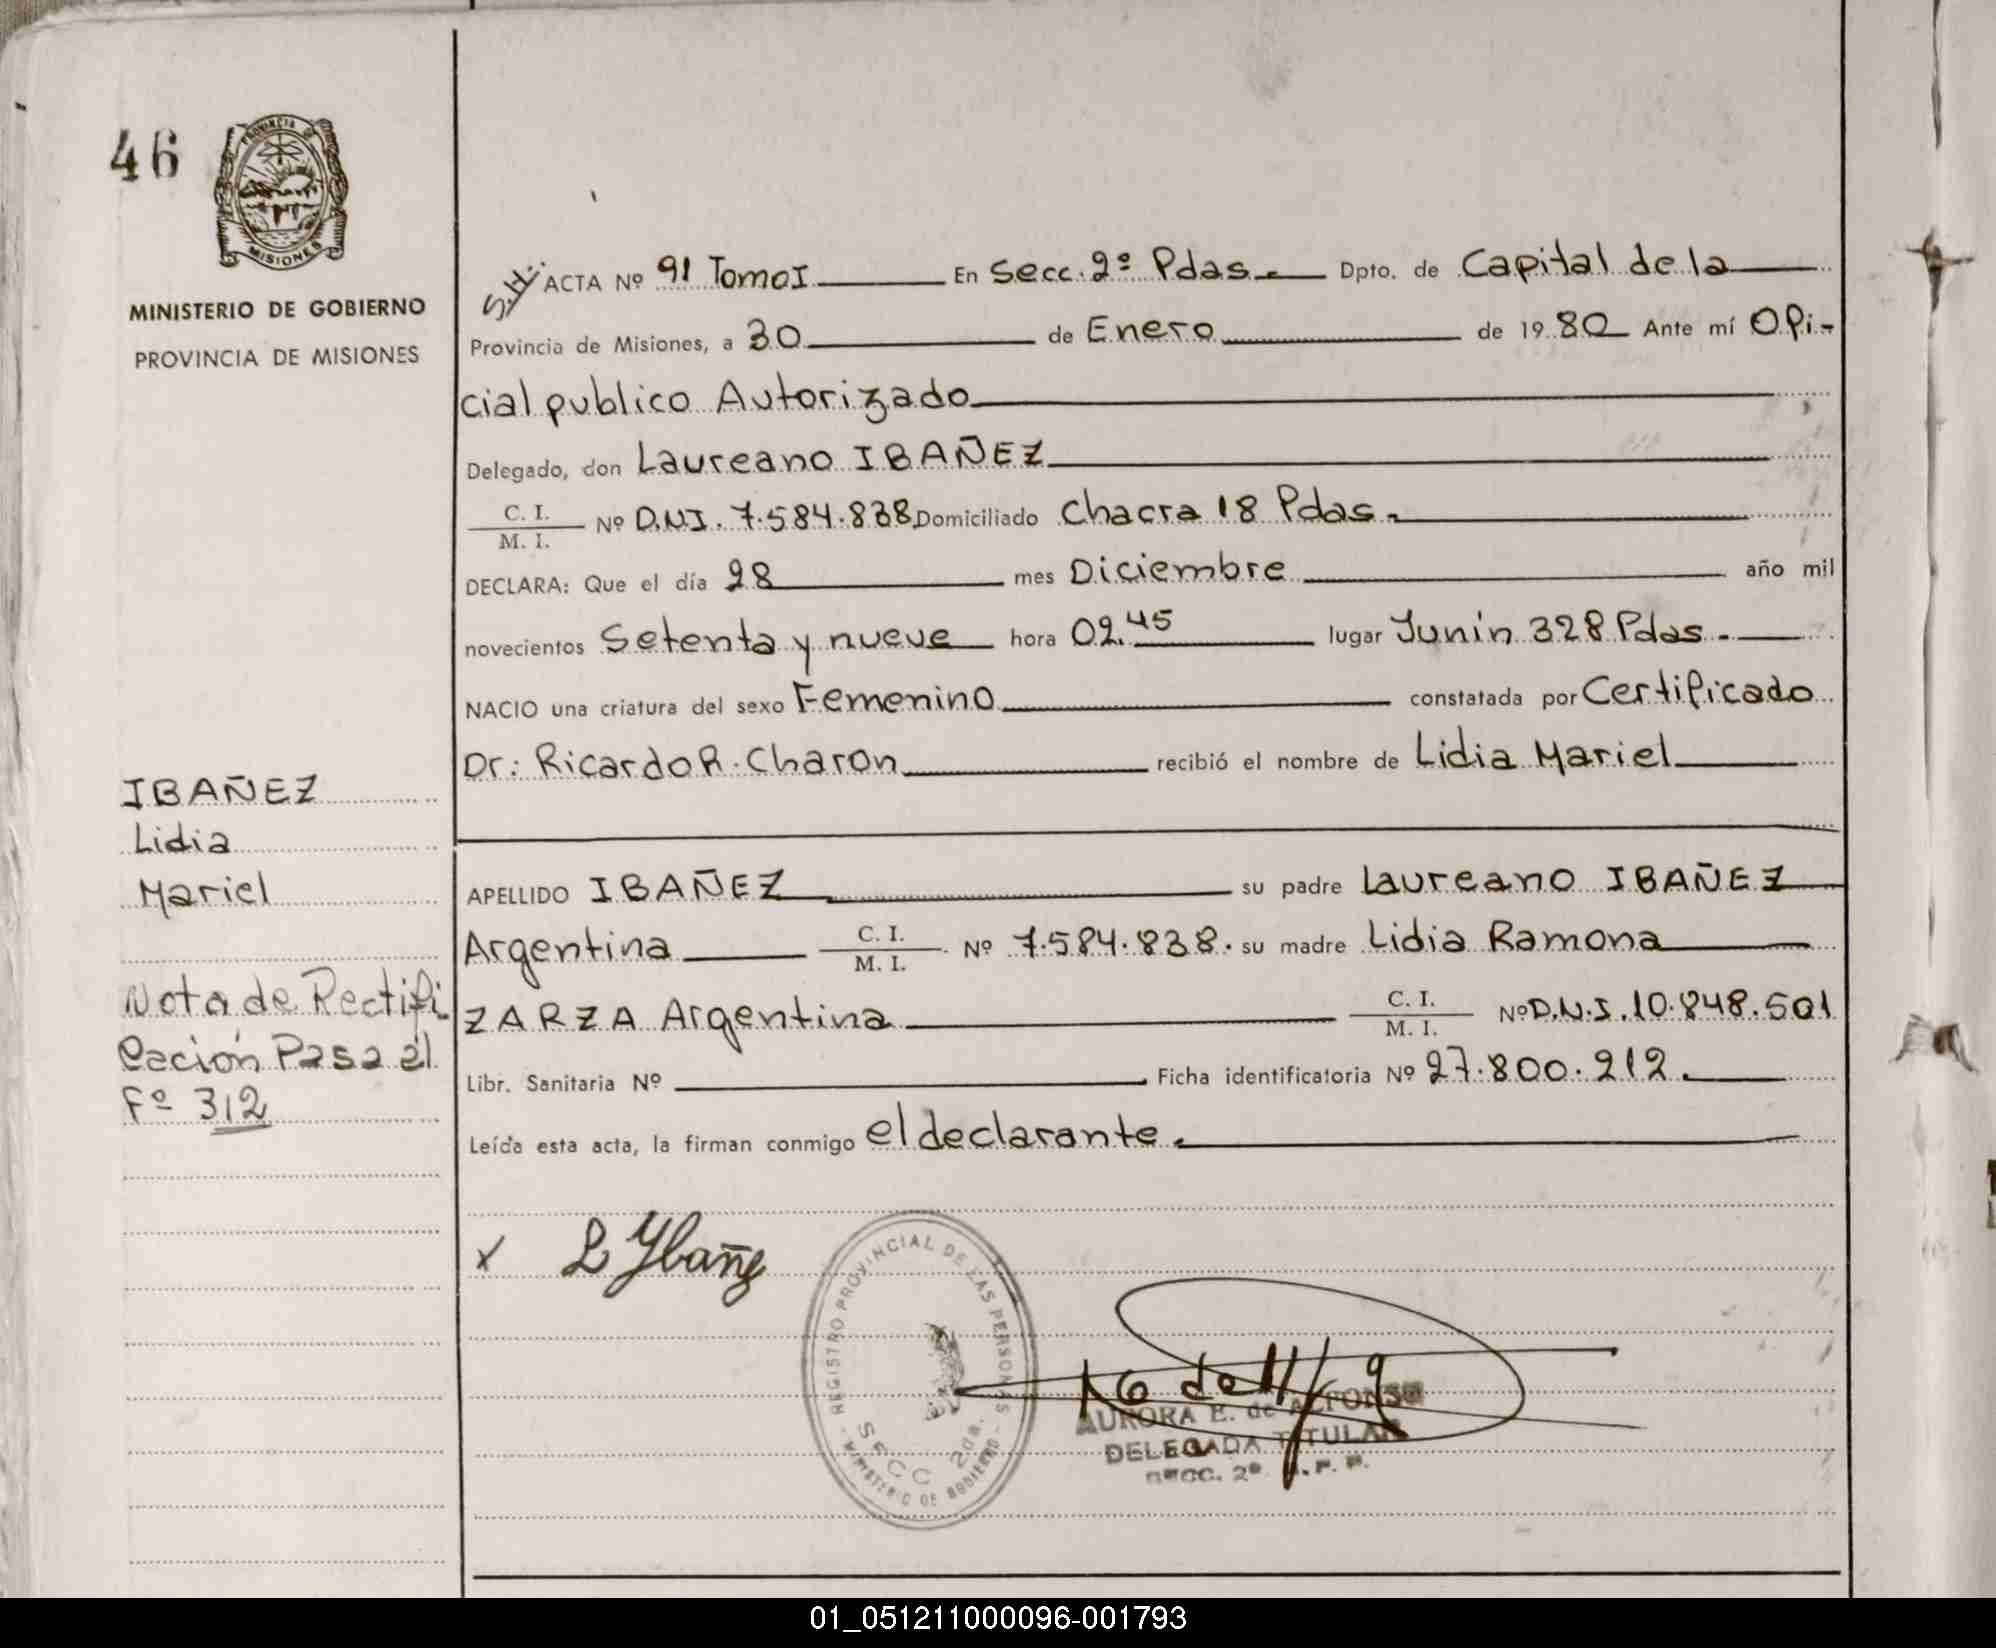 46
PROVINCIA DE
MISIONES
MINISTERIO DE GOBIERNO
PROVINCIA DE MISIONES
S.H. ACTA Nº 91 Tomo I En Secc. 2º Pdas. Dpto. de Capital de la
Provincia de Misiones, a 30 de Enero de 1980 Ante mí Ofi-
cial publico Autorizado
Delegado, don Laureano IBAÑEZ
C. I.
M. I. Nº D.N.I. 7.584.838 Domiciliado Chacra 18 Pdas.
DECLARA: Que el día 28 mes Diciembre año mil
novecientos Setenta y nueve hora 02.45 lugar Junin 328 Pdas.
NACIO una criatura del sexo Femenino constatada por Certificado
Dr: Ricardo R. Charon recibió el nombre de Lidia Mariel
IBAÑEZ
Lidia
Mariel
Nota de Rectifi
cación Pasa al
Fº 312
APELLIDO IBAÑEZ su padre Laureano IBAÑEZ
Argentina C. I.
M. I. Nº 7.584.838. su madre Lidia Ramona
ZARZA Argentina C. I.
M. I. Nº D.N.I. 10.848.501
Libr. Sanitaria Nº Ficha identificatoria Nº 27.800.212.
Leída esta acta, la firman conmigo el declarante.
x L Ybañez
REGISTRO PROVINCIAL DE LAS PERSONAS
SECC 2da.
MINISTERIO DE GOBIERNO
AURORA E. de ALFONSO
DELEGADA TITULAR
SECC. 2º
01_051211000096-001793